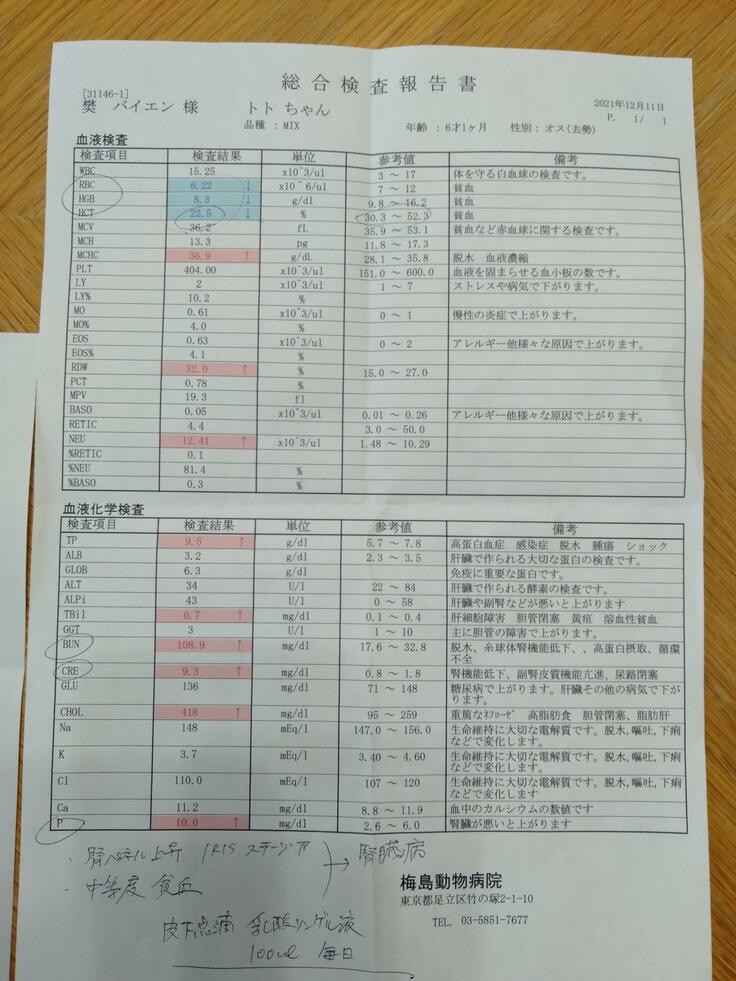 総合検査報告書
[31146-1]
樊 バイエン 様 トト ちゃん 2021年12月11日
品種 : MIX 年齢 : 6才1ヶ月 性別 : オス(去勢) P. 1/ 1
血液検査
検査項目 検査結果 単位 参考値 備考
WBC 15.25 x10^3/ul 3 ～ 17 体を守る白血球の検査です。
RBC 6.22 ↓ x10^6/ul 7 ～ 12 貧血
HGB 8.3 ↓ g/dl 9.8 ～ 16.2 貧血
HCT 22.5 ↓ % 30.3 ～ 52.3 貧血
MCV 36.2 fL 35.9 ～ 53.1 貧血など赤血球に関する検査です。
MCH 13.3 pg 11.8 ～ 17.3
MCHC 36.9 ↑ g/dL 28.1 ～ 35.8 脱水 血液濃縮
PLT 404.00 x10^3/ul 151.0 ～ 600.0 血液を固まらせる血小板の数です。
LY 2 x10^3/ul 1 ～ 7 ストレスや病気で下がります。
LY% 10.2 %
MO 0.61 x10^3/ul 0 ～ 1 慢性の炎症で上がります。
MO% 4.0 %
EOS 0.63 x10^3/ul 0 ～ 2 アレルギー他様々な原因で上がります。
EOS% 4.1 %
RDW 32.0 ↑ % 15.0 ～ 27.0
PCT 0.78 %
MPV 19.3 fl
BASO 0.05 x10^3/ul 0.01 ～ 0.26 アレルギー他様々な原因で上がります。
RETIC 4.4 3.0 ～ 50.0
NEU 12.41 ↑ x10^3/ul 1.48 ～ 10.29
%RETIC 0.1
%NEU 81.4 %
%BASO 0.3 %
血液化学検査
検査項目 検査結果 単位 参考値 備考
TP 9.5 ↑ g/dl 5.7 ～ 7.8 高蛋白血症 感染症 脱水 腫瘍 ショック
ALB 3.2 g/dl 2.3 ～ 3.5 肝臓で作られる大切な蛋白の検査です。
GLOB 6.3 g/dl 免疫に重要な蛋白です。
ALT 34 U/l 22 ～ 84 肝臓で作られる酵素の検査です。
ALPi 43 U/l 0 ～ 58 肝臓や副腎などが悪いと上がります
TBil 0.7 ↑ mg/dl 0.1 ～ 0.4 肝細胞障害 胆管閉塞 黄疸 溶血性貧血
GGT 3 U/l 1 ～ 10 主に胆管の障害で上がります。
BUN 108.9 ↑ mg/dl 17.6 ～ 32.8 脱水、糸球体腎機能低下、、高蛋白摂取、循環
不全
CRE 9.3 ↑ mg/dl 0.8 ～ 1.8 腎機能低下、副腎皮質機能亢進、尿路閉塞
GLU 136 mg/dl 71 ～ 148 糖尿病で上がります。肝臓その他の病気で下が
ります。
CHOL 418 ↑ mg/dl 95 ～ 259 重篤なﾈﾌﾛｰｾﾞ 高脂肪食 胆管閉塞、脂肪肝
Na 148 mEq/l 147.0 ～ 156.0 生命維持に大切な電解質です。脱水,嘔吐,下痢
などで変化します。
K 3.7 mEq/l 3.40 ～ 4.60 生命維持に大切な電解質です。脱水,嘔吐,下痢
などで変化します。
Cl 110.0 mEq/l 107 ～ 120 生命維持に大切な電解質です。脱水,嘔吐,下痢
などで変化します
Ca 11.2 mg/dl 8.8 ～ 11.9 血中のカルシウムの数値です
P 10.0 ↑ mg/dl 2.6 ～ 6.0 腎臓が悪いと上がります
・腎パネル上昇 IRIS ステージⅣ → 腎臓病
・中等度 貧血
皮下点滴 乳酸リンゲル液
100ml 毎日
梅島動物病院
東京都足立区竹の塚2-1-10
TEL. 03-5851-7677